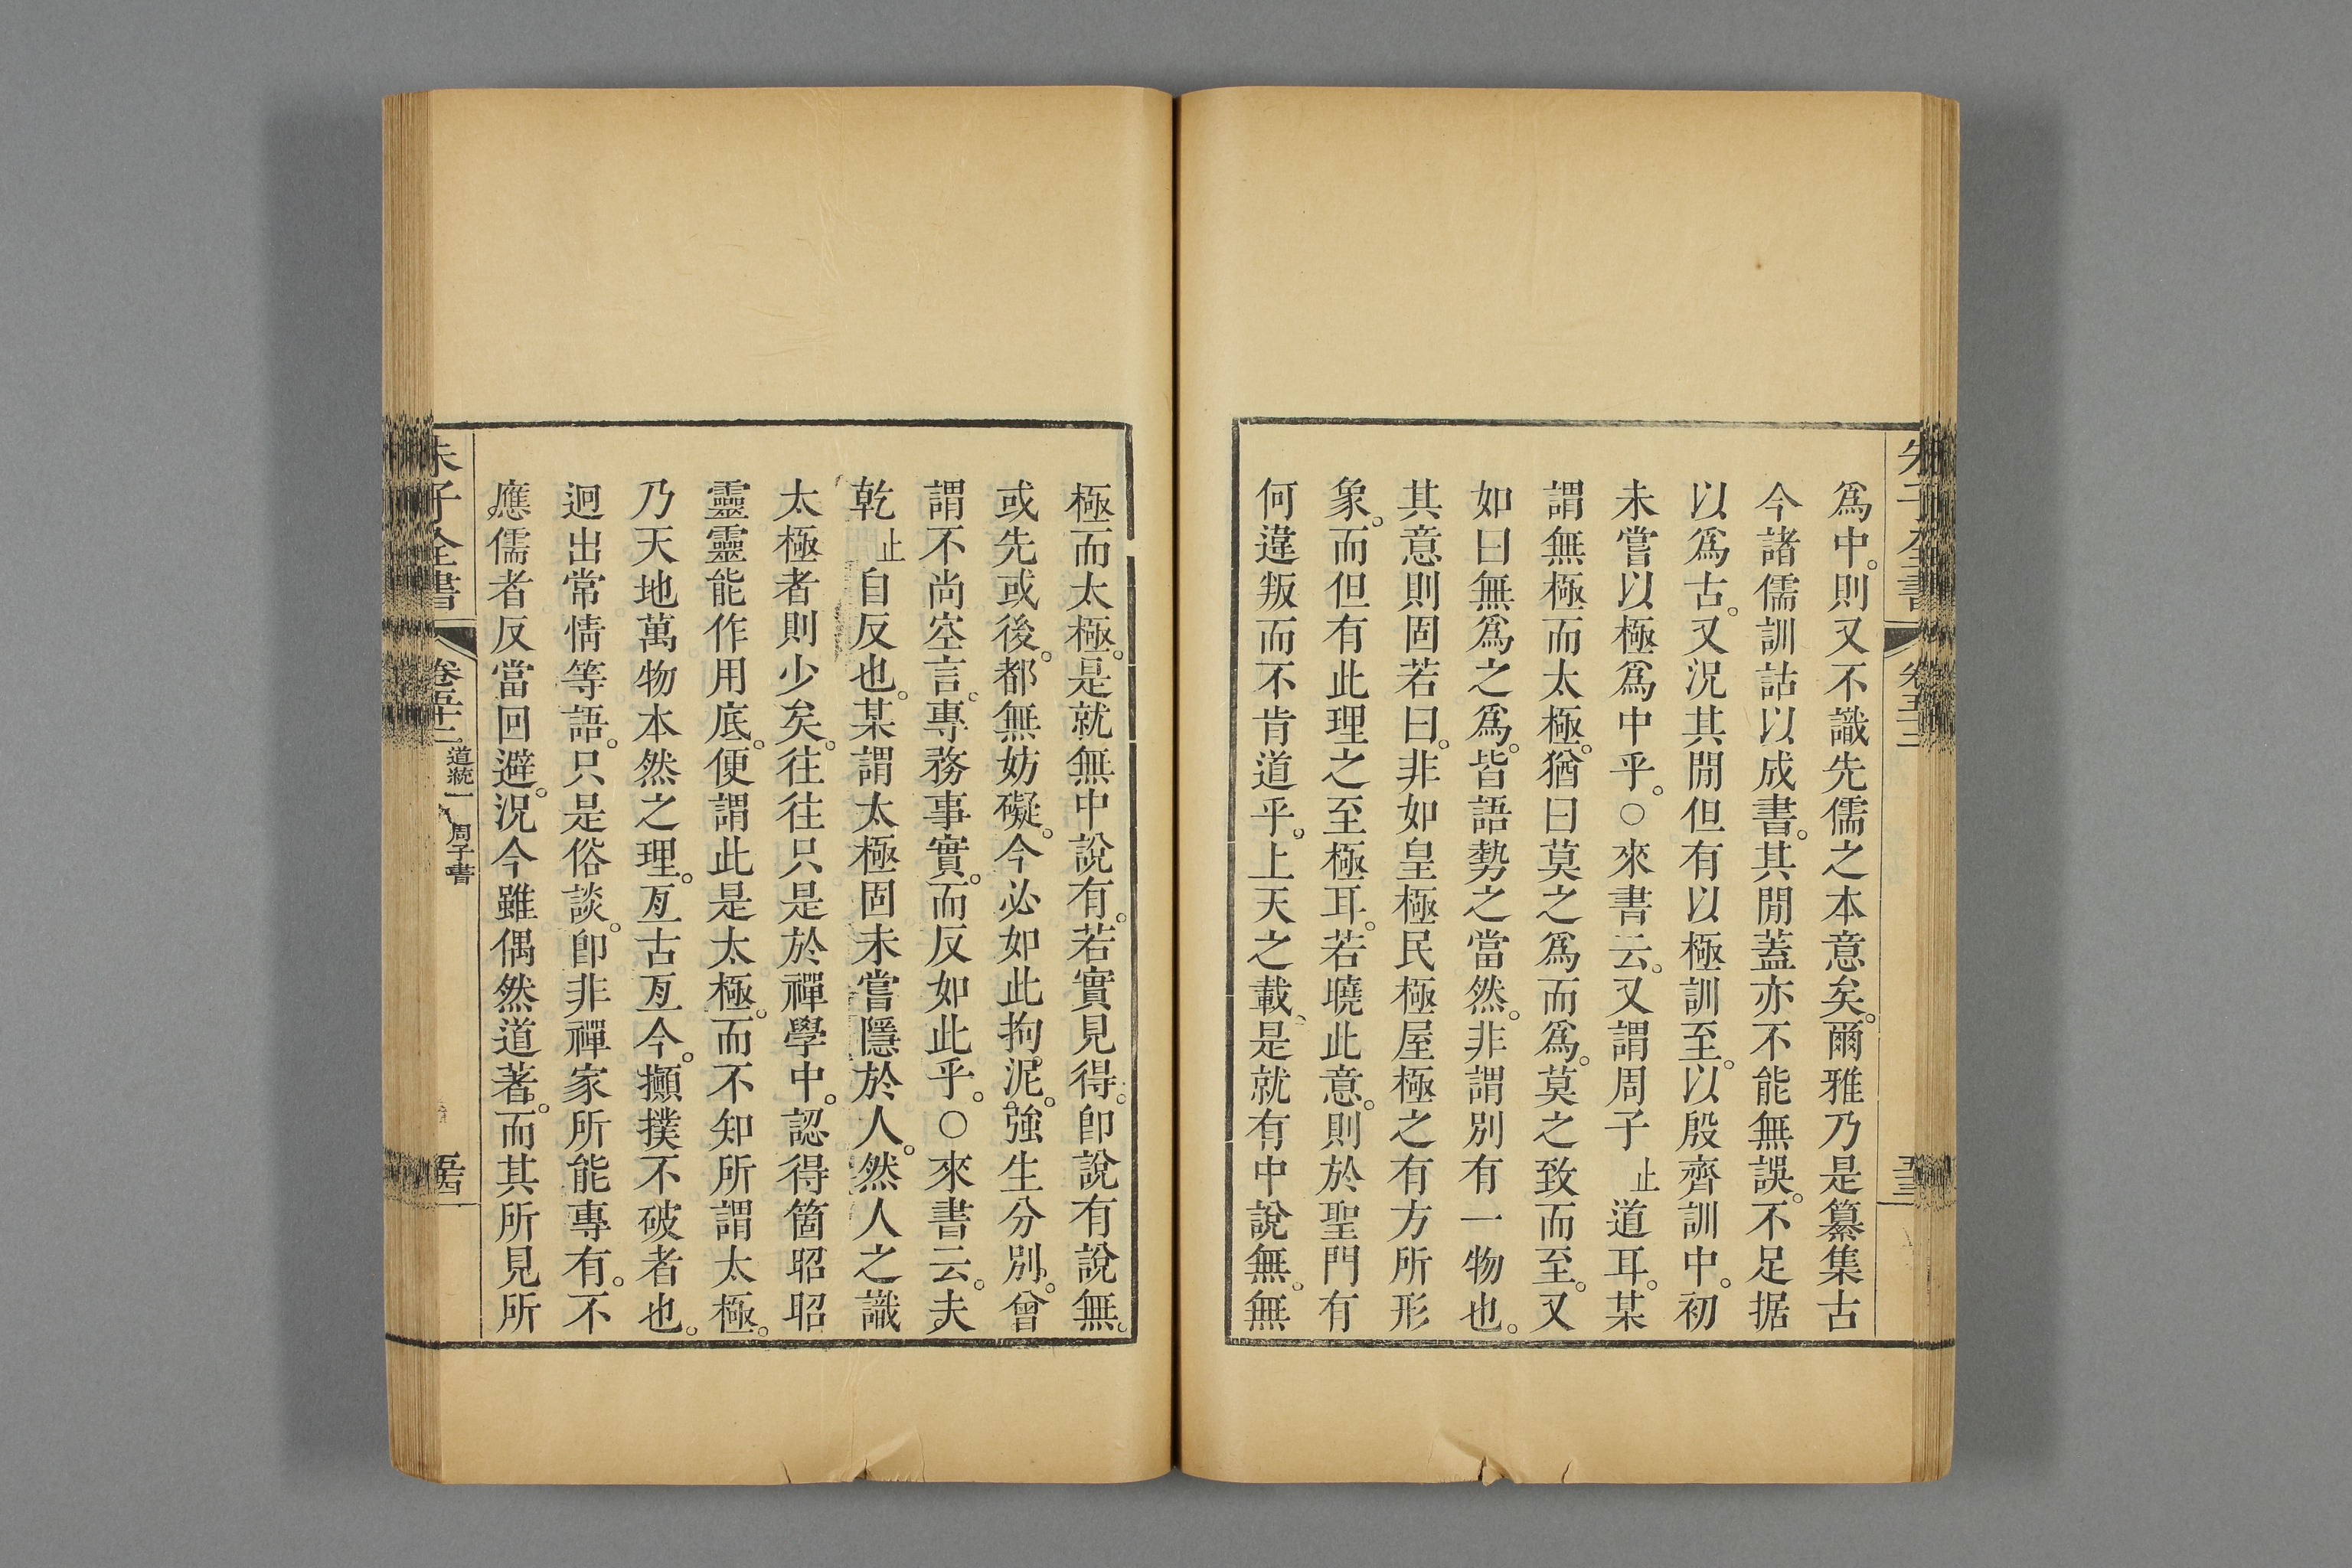 朱子全書 卷五十二 五十三
爲中。則又不識先儒之本意矣。爾雅乃是纂集古
今諸儒訓詁以成書。其閒蓋亦不能無誤。不足据
以爲古。又況其閒但有以極訓至。以殷齊訓中。初
未嘗以極爲中乎。○來書云。又謂周子止道耳。某
謂無極而太極。猶曰莫之爲而爲。莫之致而至。又
如曰無爲之爲。皆語勢之當然。非謂別有一物也。
其意則固若曰。非如皇極民極屋極之有方所形
象。而但有此理之至極耳。若曉此意。則於聖門有
何違叛而不肯道乎。上天之載、是就有中說無。無
極而太極。是就無中說有。若實見得。卽說有說無。
或先或後。都無妨礙。今必如此拘泥。強生分別。曾
謂不尚空言。專務事實。而反如此乎。○來書云。夫
乾止自反也。某謂太極固未嘗隱於人。然人之識
太極者則少矣。往往只是於禪學中。認得箇昭昭
靈靈能作用底。便謂此是太極。而不知所謂太極。
乃天地萬物本然之理。亙古亙今。攧撲不破者也。
迥出常情等語。只是俗談。卽非禪家所能專有。不
應儒者反當回避。況今雖偶然道著。而其所見所
朱子全書 卷五十二 道統一 周子書 五十四